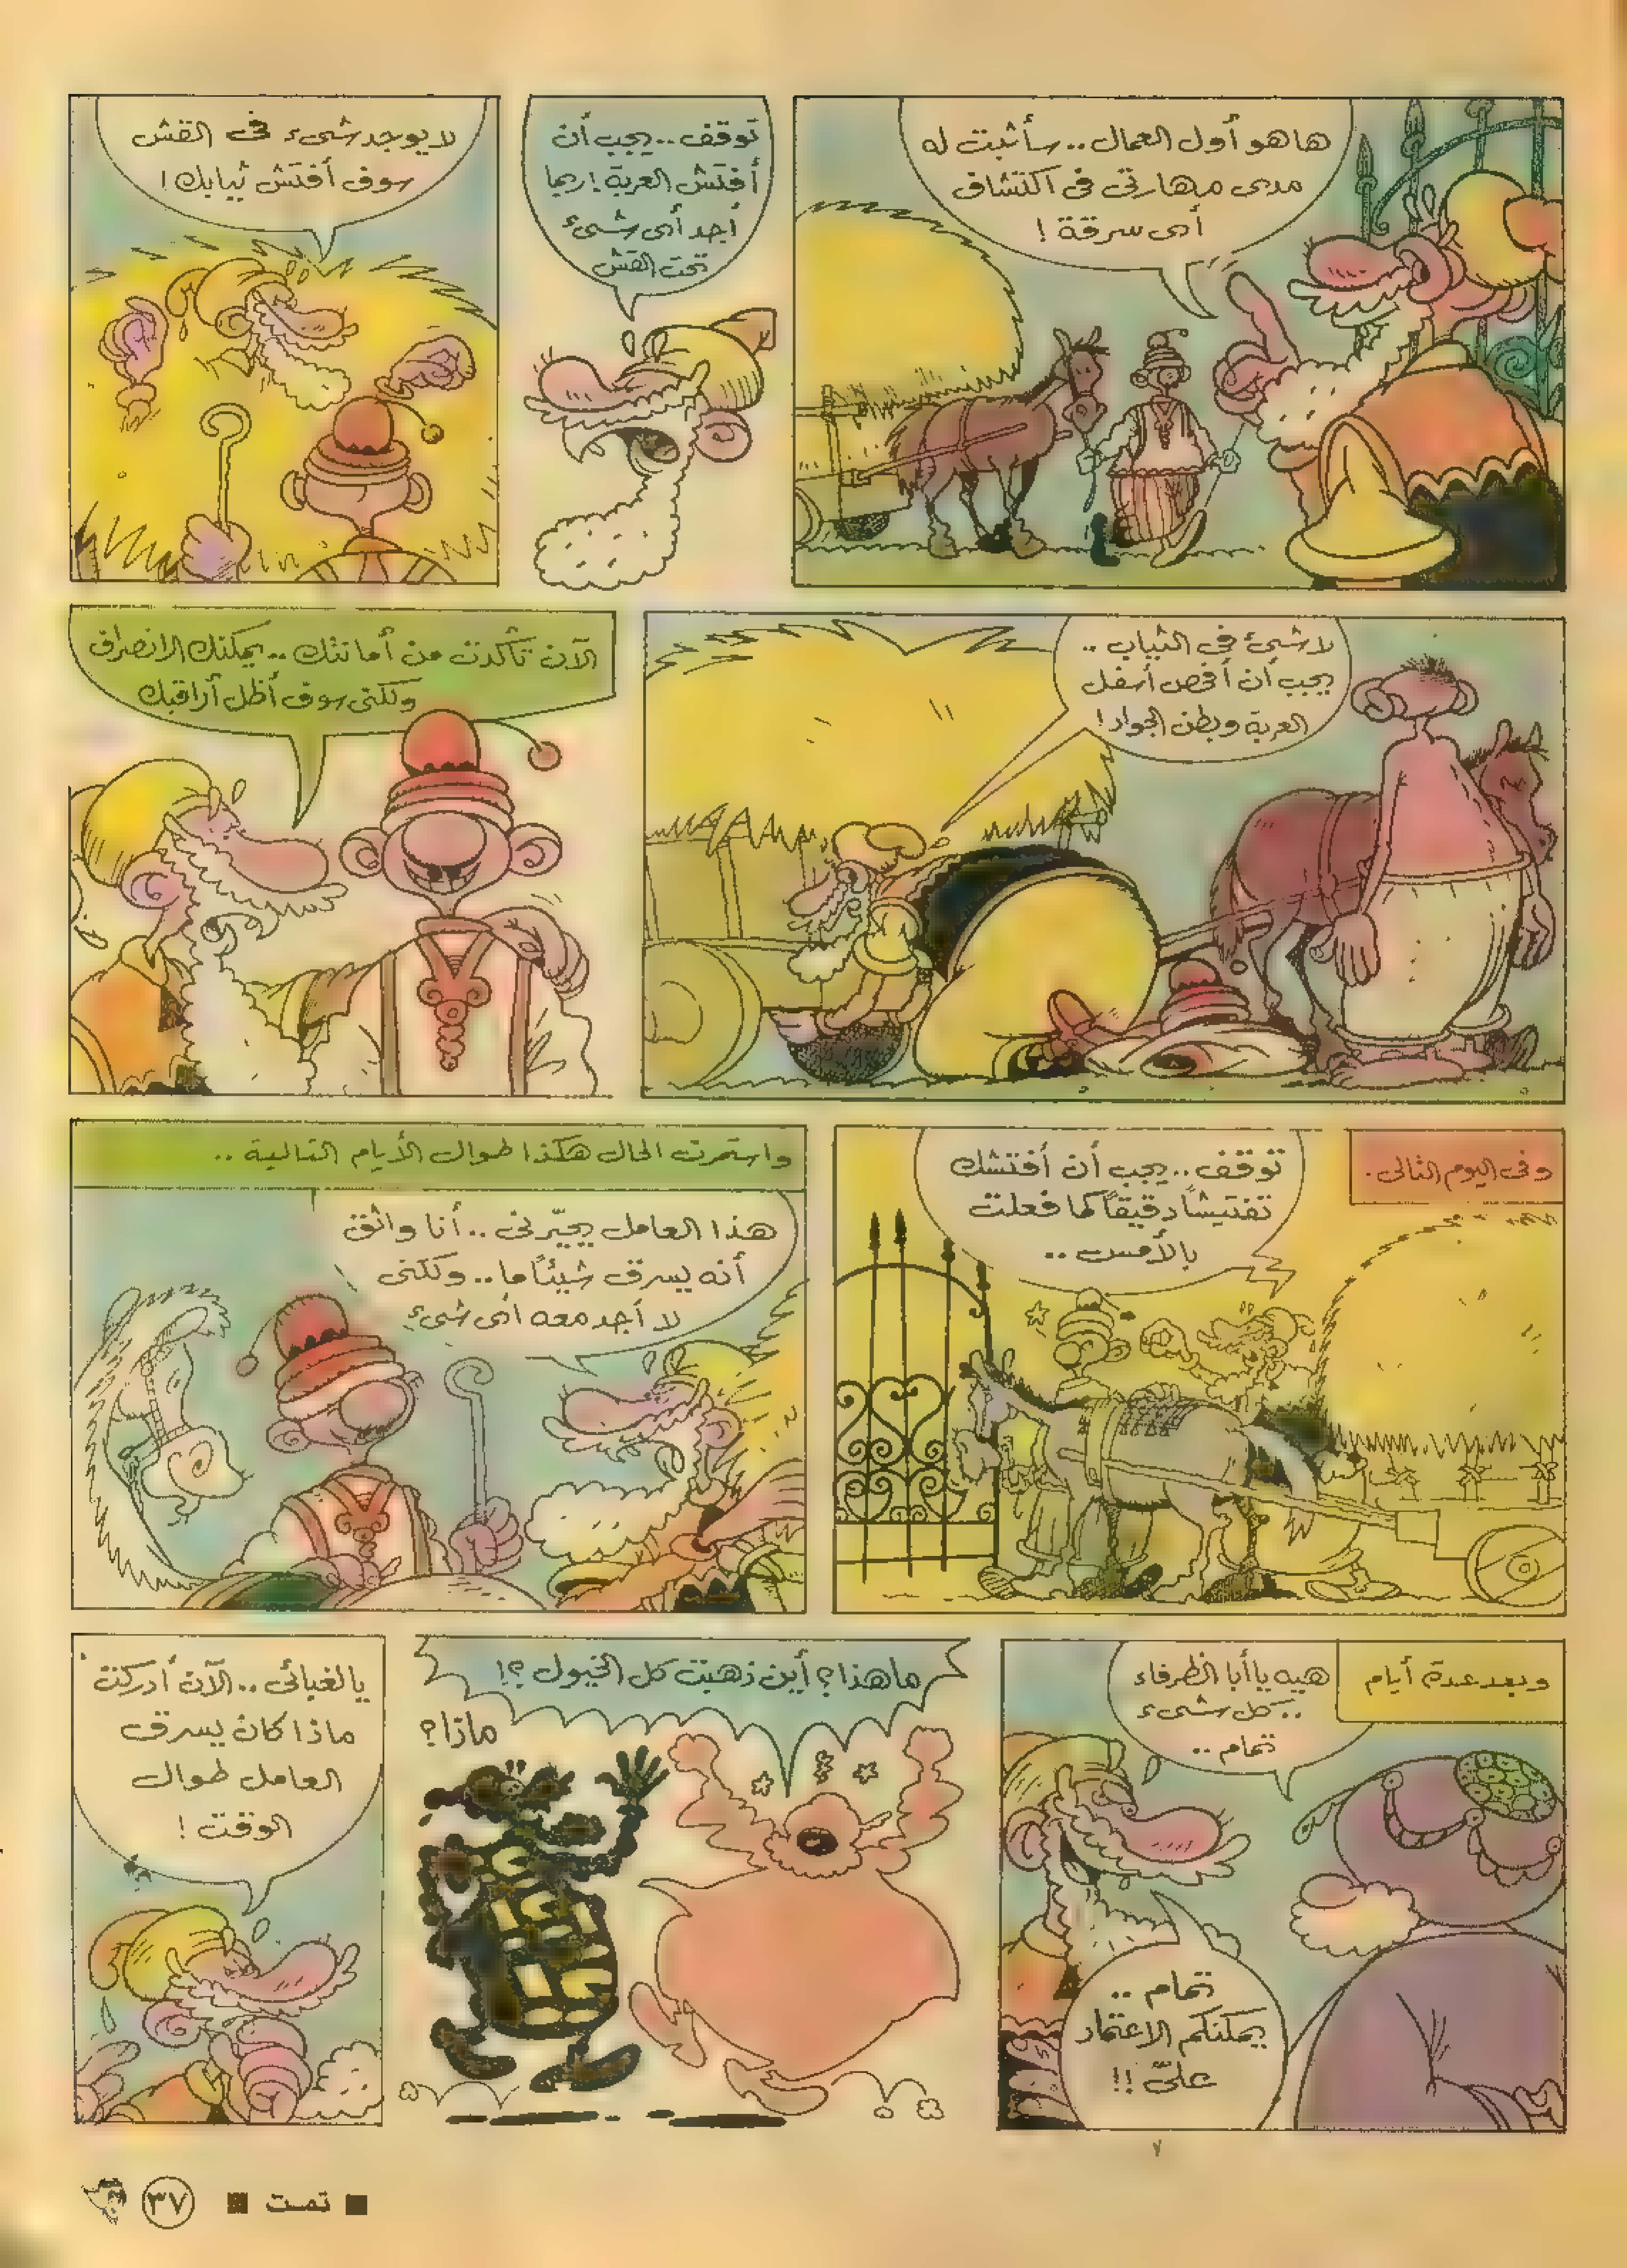 هاهو أول العمال.. سأثبت له
مدى مهارتى فى اكتشاف
أى سرقة!
توقف.. يجب أن
أفتش العربة! ربما
أجد أى شىء
تحت القش
لا يوجد شىء فى القش
سوف أفتش ثيابك!
لا شىء فى الثياب..
يجب أن أفحص أسفل
العربة وبطن الجواد!
الآن تأكدت من أمانتك.. يمكنك الانصراف
ولكنى سوف أظل أراقبك
وفى اليوم التالى.
توقف.. يجب أن أفتشك
تفتيشاً دقيقاً كما فعلت
بالأمس..
واستمرت الحال هكذا طوال الأيام التالية..
هذا العامل يحيّرنى.. أنا واثق
أنه يسرق شيئاً ما.. ولكنى
لا أجد معه أى شىء
وبعد عدة أيام
هيه يا أبا الظرفاء
.. كل شىء
تمام..
تمام..
يمكنكم الاعتماد
علىّ!!
ما هذا؟ أين ذهبت كل الخيول؟!
ماذا؟
يا لغبائى.. الآن أدركت
ماذا كان يسرق
العامل طوال
الوقت!
٧
■ تمت ■ ٣٧